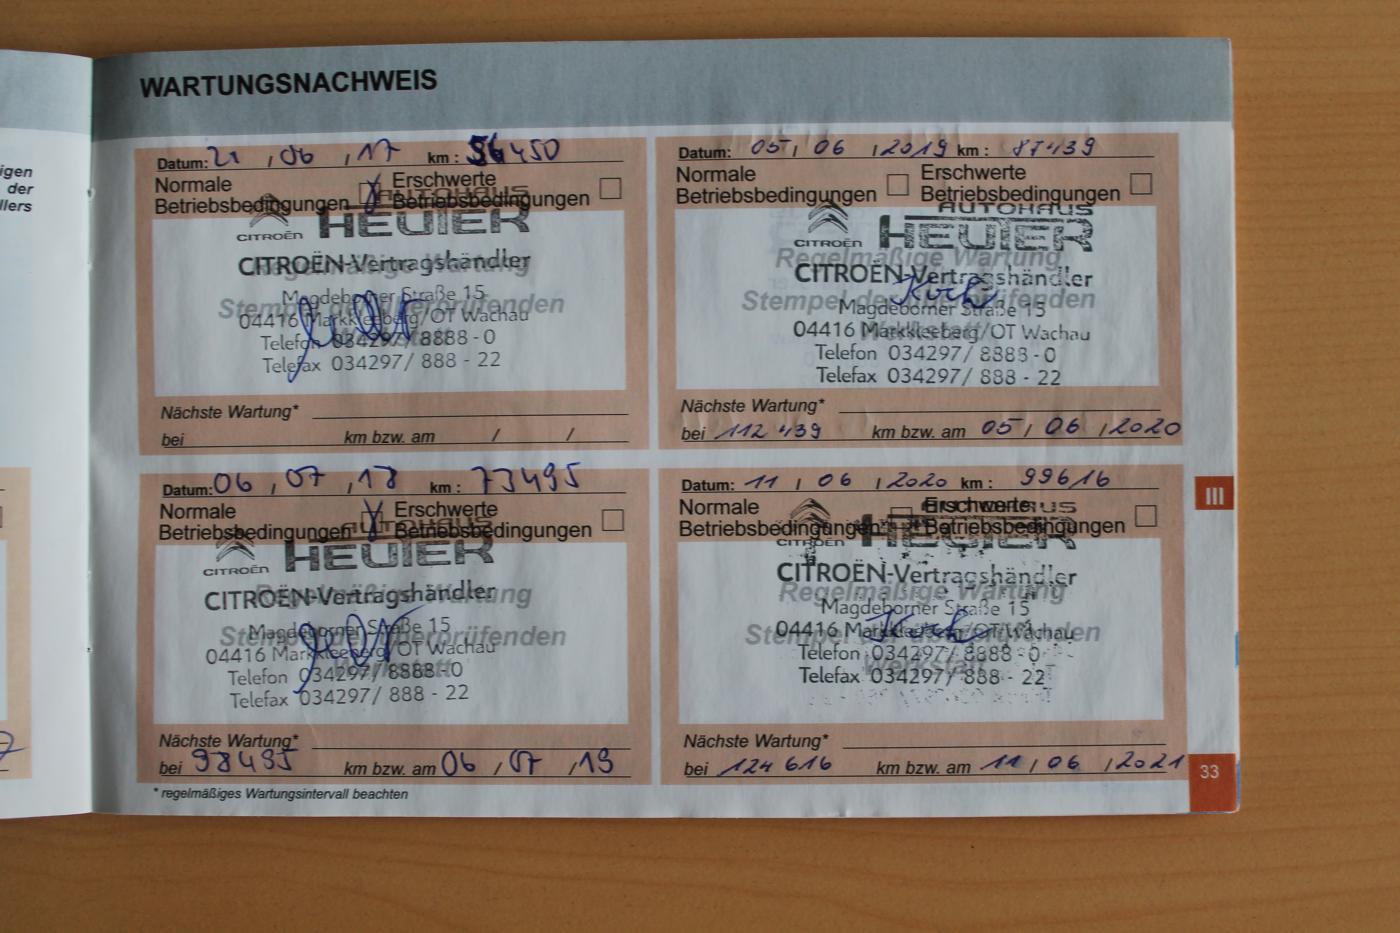 igen
der
llers
WARTUNGSNACHWEIS
Datum: 21 , 06 , 17 km : 56450
Normale Betriebsbedingungen
Erschwerte Betriebsbedingungen
AUTOHAUS
CITROËN HEUIER
CITROËN-Vertragshändler
Regelmäßige Wartung
Magdeborner Straße 15
Stempel der überprüfenden
04416 Markkleeberg/OT Wachau
Werkstatt
Telefon 034297/ 8888 - 0
Telefax 034297/ 888 - 22
Nächste Wartung*
bei km bzw. am / /
Datum: 05 , 06 , 2019 km : 87439
Normale Betriebsbedingungen
Erschwerte Betriebsbedingungen
AUTOHAUS
CITROËN HEUIER
Regelmäßige Wartung
CITROËN-Vertragshändler
Stempel der überprüfenden
Magdeborner Straße 15
04416 Markkleeberg/OT Wachau
Werkstatt
Telefon 034297/ 8888 - 0
Telefax 034297/ 888 - 22
Nächste Wartung*
bei 112 439 km bzw. am 05 / 06 , 2020
Datum: 06 , 07 , 18 km : 73495
Normale Betriebsbedingungen
Erschwerte Betriebsbedingungen
AUTOHAUS
CITROËN HEUIER
CITROËN-Vertragshändler
Regelmäßige Wartung
Magdeborner Straße 15
Stempel der überprüfenden
04416 Markkleeberg/OT Wachau
Werkstatt
Telefon 034297/ 8888-0
Telefax 034297/ 888 - 22
Nächste Wartung*
bei 98495 km bzw. am 06 / 07 / 19
Datum: 11 , 06 , 2020 km : 99616
Normale Betriebsbedingungen
Erschwerte Betriebsbedingungen
AUTOHAUS
CITROËN HEUIER
CITROËN-Vertragshändler
Regelmäßige Wartung
Magdeborner Straße 15
Stempel der überprüfenden
04416 Markkleeberg/OT Wachau
Werkstatt
Telefon 034297/ 8888 - 0
Telefax 034297/ 888 - 22
Nächste Wartung*
bei 124 616 km bzw. am 11 / 06 / 2021
* regelmäßiges Wartungsintervall beachten
III
33